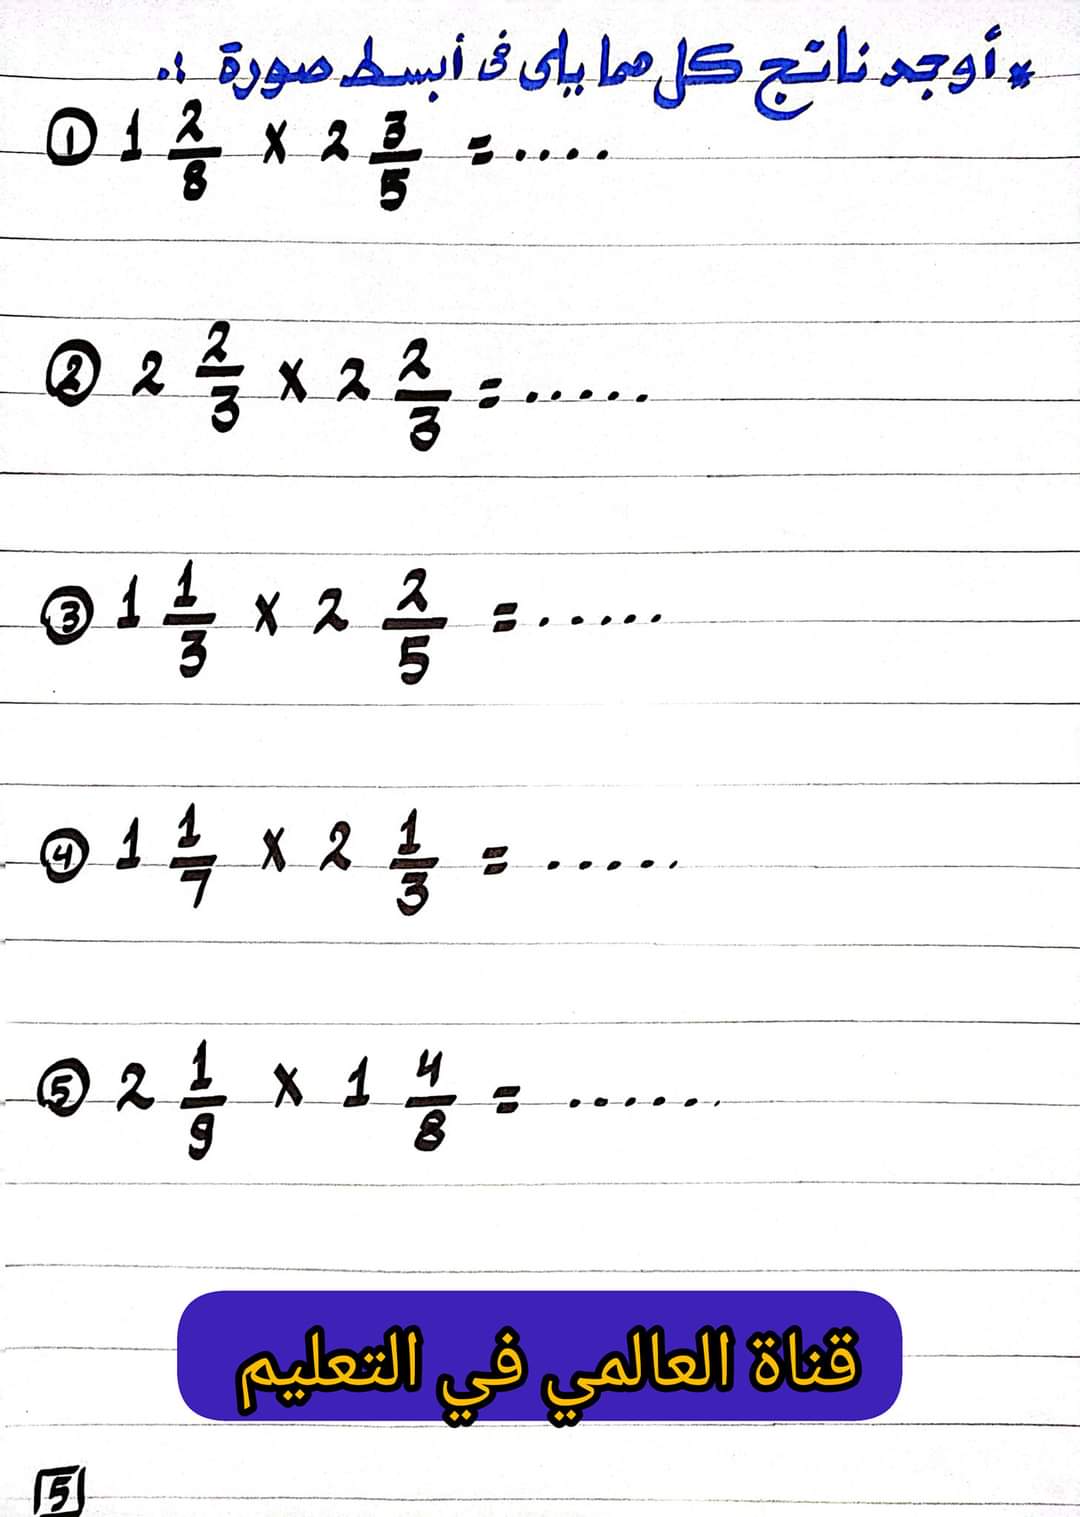 * أوجد ناتج كل مما يلى فى أبسط صورة :.
① 1 2/8 × 2 3/5 = ....
② 2 2/3 × 2 2/3 = .....
③ 1 1/3 × 2 2/5 = .....
④ 1 1/7 × 2 1/3 = .....
⑤ 2 1/9 × 1 4/8 = ......
قناة العالمي في التعليم
5